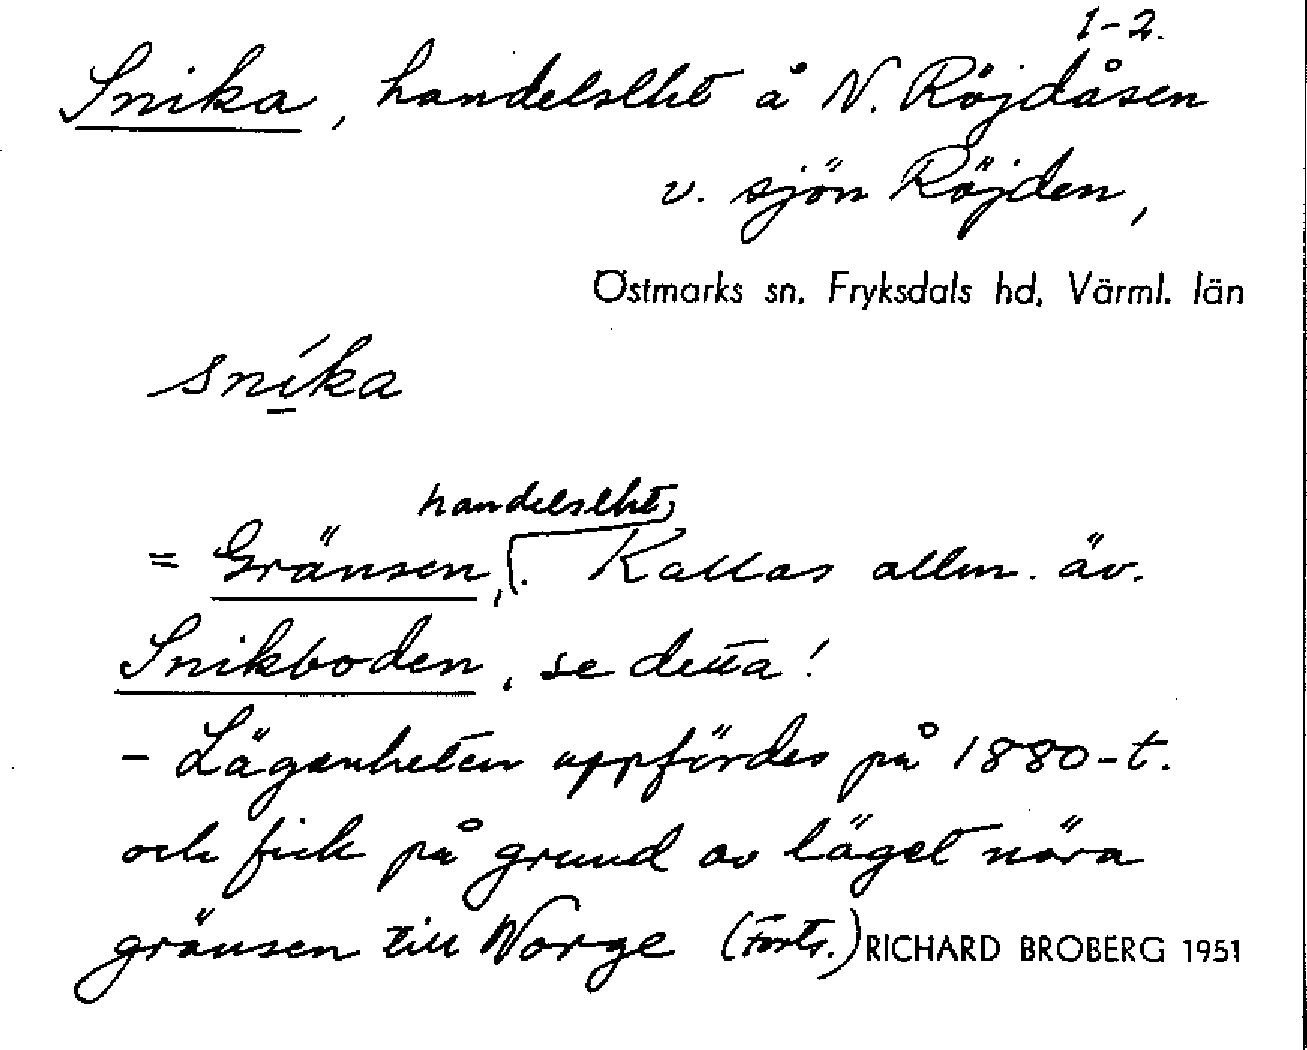 1-2.
Snika, handelslht å N. Röjdåsen
v. sjön Röjden,
Östmarks sn. Fryksdals hd, Värml. län
sníka
handelslht,
= Gränsen,. Kallas allm. äv.
Snikboden, se detta!
- Lägenheten uppfördes på 1880-t.
och fick på grund av läget nära
gränsen till Norge (Forts.) RICHARD BROBERG 1951